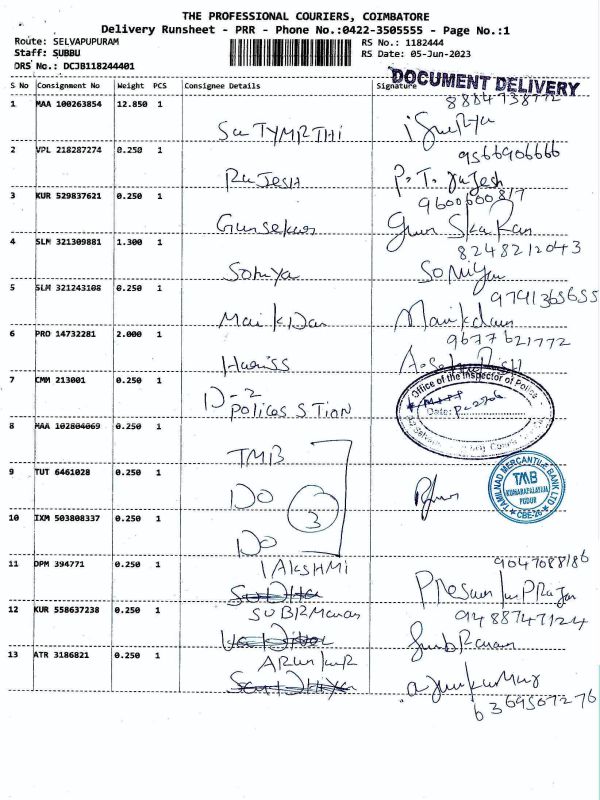 THE PROFESSIONAL COURIERS, COIMBATORE
Delivery Runsheet - PRR - Phone No.:0422-3505555 - Page No.:1
Route: SELVAPUPURAM RS No.: 1182444
Staff: SUBBU RS Date: 05-Jun-2023
DRS No.: DCJB118244401
DOCUMENT DELIVERY
S No Consignment No Weight PCS Consignee Details Signature
1 MAA 100263854 12.850 1
SaTYMRTHI
2 VPL 218287274 0.250 1 9566906666
RaJESH P. T. Rajesh
3 KUR 529837621 0.250 1
Gunsekar
4 SLM 321309881 1.300 1 8248212043
Soniya SoNiya
5 SLM 321243108 0.250 1 9791365655
Manikdan
6 PRO 14732281 2.000 1 9677621772
Hariss
7 CMM 213001 0.250 1 Office of the Inspector of Police
D-2 Date:
POLICES STION
8 MAA 102804069 0.250 1
TMB
9 TUT 6461028 0.250 1 TAMILNAD MERCANTILE BANK LTD
DO 3 TMB
KUMARAPALAYAM
PUDUR
CBE-26
10 IXM 503808337 0.250 1
DO
11 DPM 394771 0.250 1
LAkSHMi
12 KUR 558637238 0.250 1 9488747124
13 ATR 3186821 0.250 1
ARunkuR
6369507276